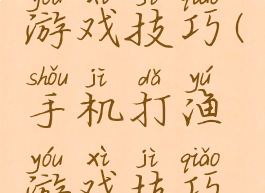 yóu xì jì qiǎo
游戏技巧(
shǒu jī dǎ yú
手机打渔
yóu xì jì qiǎo
游戏技巧